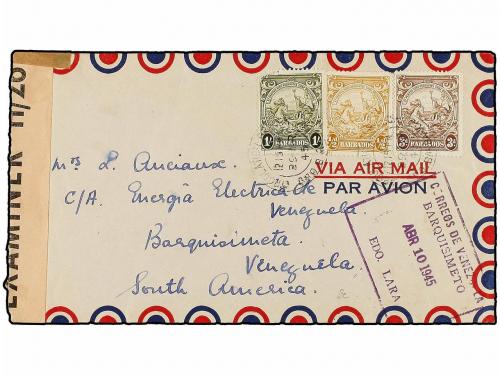 EXAMINER H/28
1/- BARBADOS 1/-
½D BARBADOS
3D BARBADOS 3D
VIA AIR MAIL
PAR AVION
Mrs L. Anciaux.
C/A. Energia Electrica de
Venezuela.
Barquisimeta.
Venezuela.
South America.
CORREOS DE VENEZUELA
BARQUISIMETO
ABR 10 1945
EDO. LARA